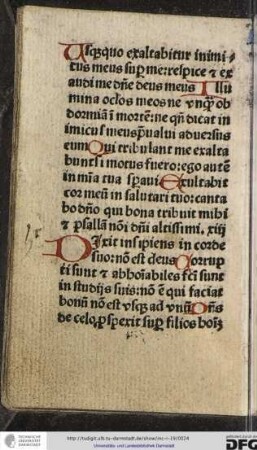 Usq̃quo exaltabitur inimi⸗
cus meus sup me: respice ⁊ ex
audi me dñe deus meus Illu
mina oc̃los meos ne vnq̃ ob
dormiã i mortẽ: ne qñ dicat in
imicus meus p̃ualui aduersus
eum Qui tribulant me exalta
bunt si motus fuero: ego autẽ
in mĩa tua spaui Exultabit
cor meũ in salutari tuo: canta
bo dño qui bona tribuit mihi
⁊ psallã nõi dñi altissimi. xiij
Dixit insipiens in corde
suo: nõ est deus Corrup
ti sunt ⁊ abhoĩabiles fc̃i sunt
in studijs suis: nõ ẽ qui faciat
bonũ nõ est vsq̃ ad vnũ Dñs
de celo pspexit sup filios hoĩm
TECHNISCHE UNIVERSITÄT DARMSTADT
http://tudigit.ulb.tu-darmstadt.de/show/inc-i-19/0024
Universitäts- und Landesbibliothek Darmstadt
gefördert durch
DFG